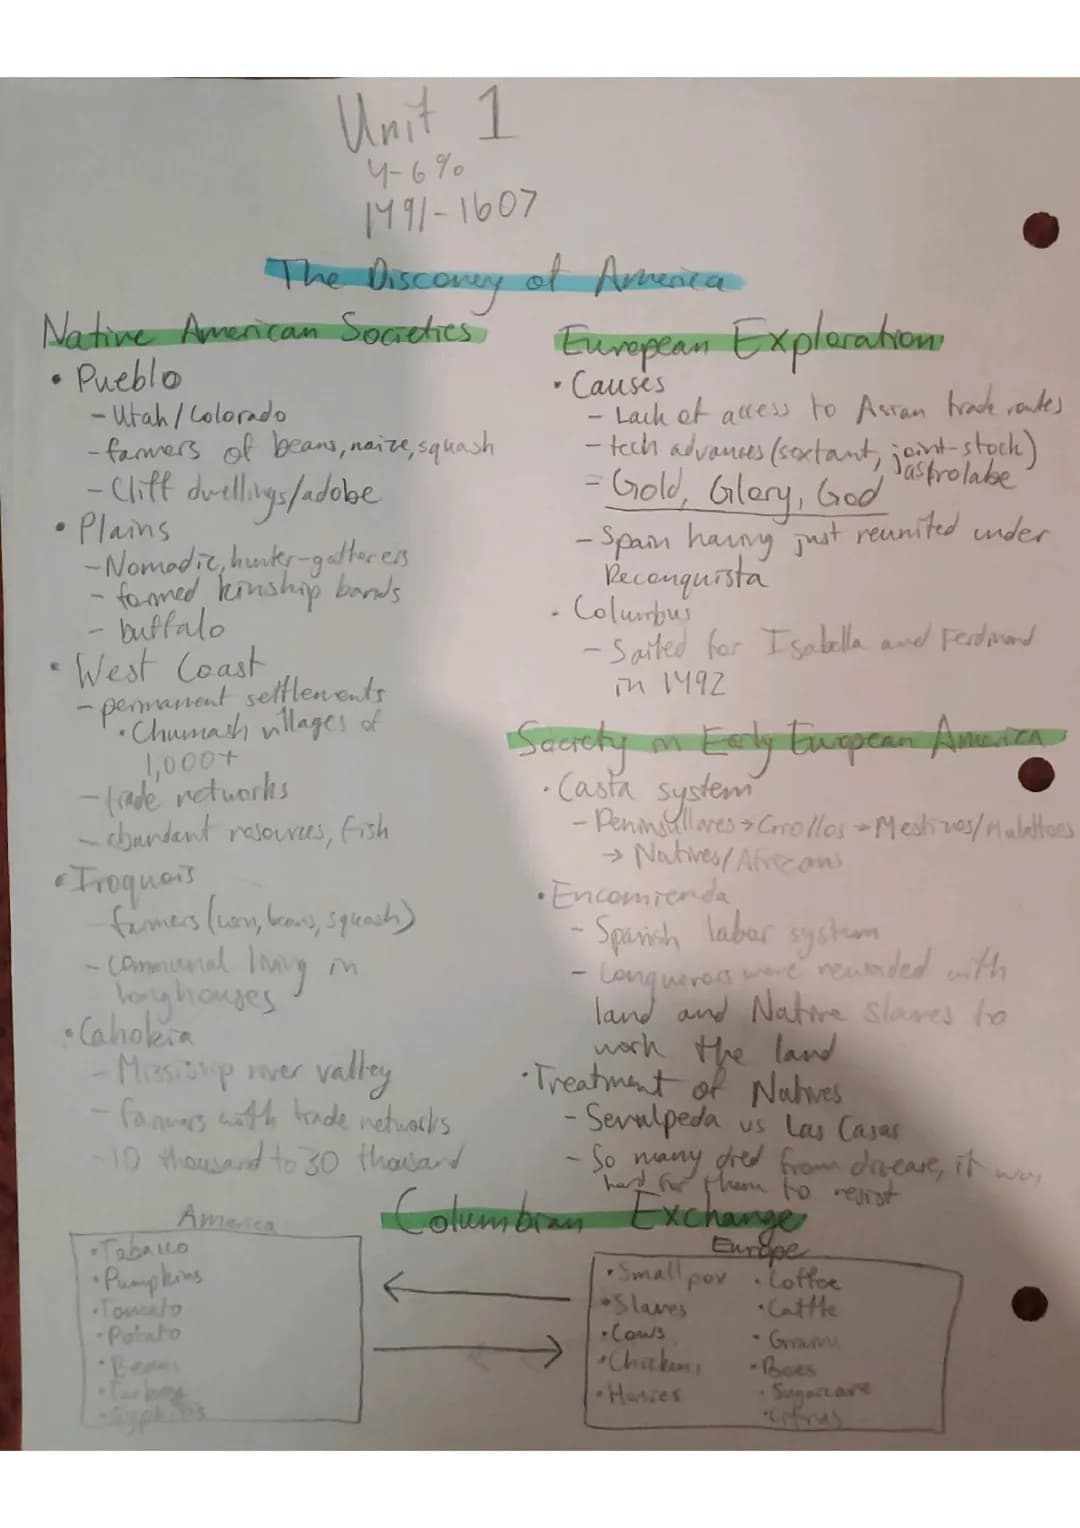 Unit 1
4-6%
1491-1607
The Discovery of America
Native American Societies
• Pueblo
- Utah/Colorado
- farmers of beans, maize, squash
- Cliff dwellings/adobe
• Plains
- Nomadic, hunter-gatherers
- formed kinship bands
- buffalo
• West Coast
- permanent settlements
• Chumash villages of
1,000+
- trade networks
- abundant resources, fish
• Iroquois
- farmers (corn, beans, squash)
- communal living in
longhouses
• Cahokia
- Mississip river valley
- farmers with trade networks
- 10 thousand to 30 thousand
European Exploration
• Causes
- Lack of access to Asian trade routes
- tech advances (sextant, joint-stock)
astrolabe
- Gold, Glory, God
- Spain having just reunited under
Reconquista
• Columbus
- Sailed for Isabella and Ferdinand
in 1492
Society in Early European America
• Casta system
- Peninsullares → Criollos → Mestizos/Mulattoes
→ Natives/Africans
• Encomienda
- Spanish labor system
- Conquerors were rewarded with
land and Native slaves to
work the land
• Treatment of Natives
- Sevulpeda vs Las Casas
- So many died from disease, it was
hard for them to resist
Columbian Exchange
America
• Tobacco
• Pumpkins
• Tomato
• Potato
• Beans
• Turkey
• Syphilis
Europe
• Smallpox
• Slaves
• Cows
• Chickens
• Horses
• Coffee
• Cattle
• Grains
• Bees
• Sugarcane
• citrus